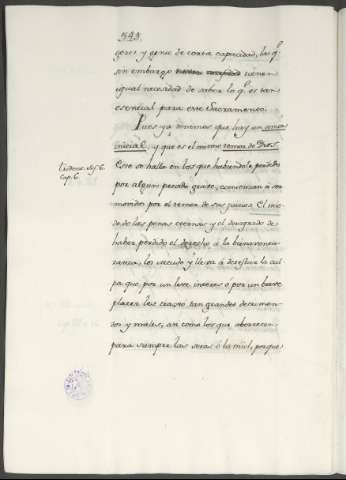 343.
gores y gente de corta capacidad, los q.e
sin embargo tienen
igual necesidad de saber lo q.e es tan
esencial para este Sacramento.
Pues ya diximos que hay un amor
inicial, y que es el mismo temor de Dios.
Trident. Ses. 6.
Cap. 6
Este se halla en los que habiendole perdido
por algun pecado grave, comienzan á ser
movidos por el temor de sus juicios. El mie-
do de las penas eternas y el desagrado de
haber perdido el derecho á la bienaventu-
ranza, los sacude y lleva á detestar la cul-
pa que, por un leve interes ó por un breve
placer les causó tan grandes detrimen-
tos y males; asi como los que aborrecen
para siempre las uvas ó la miel, porque